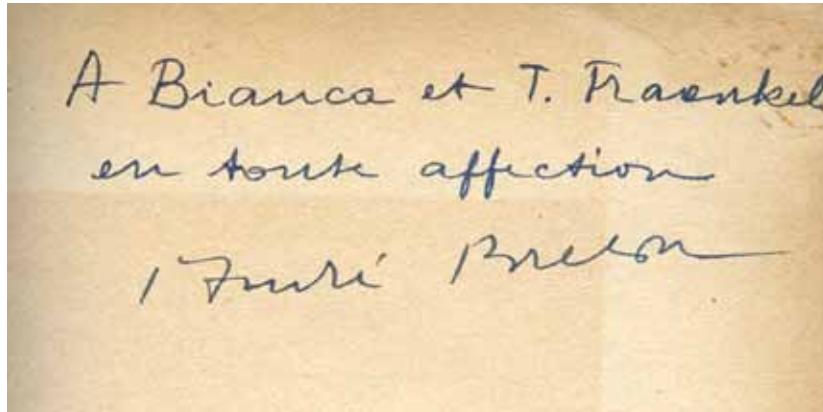 A Bianca et T. Fraenkel
en toute affection
André Breton